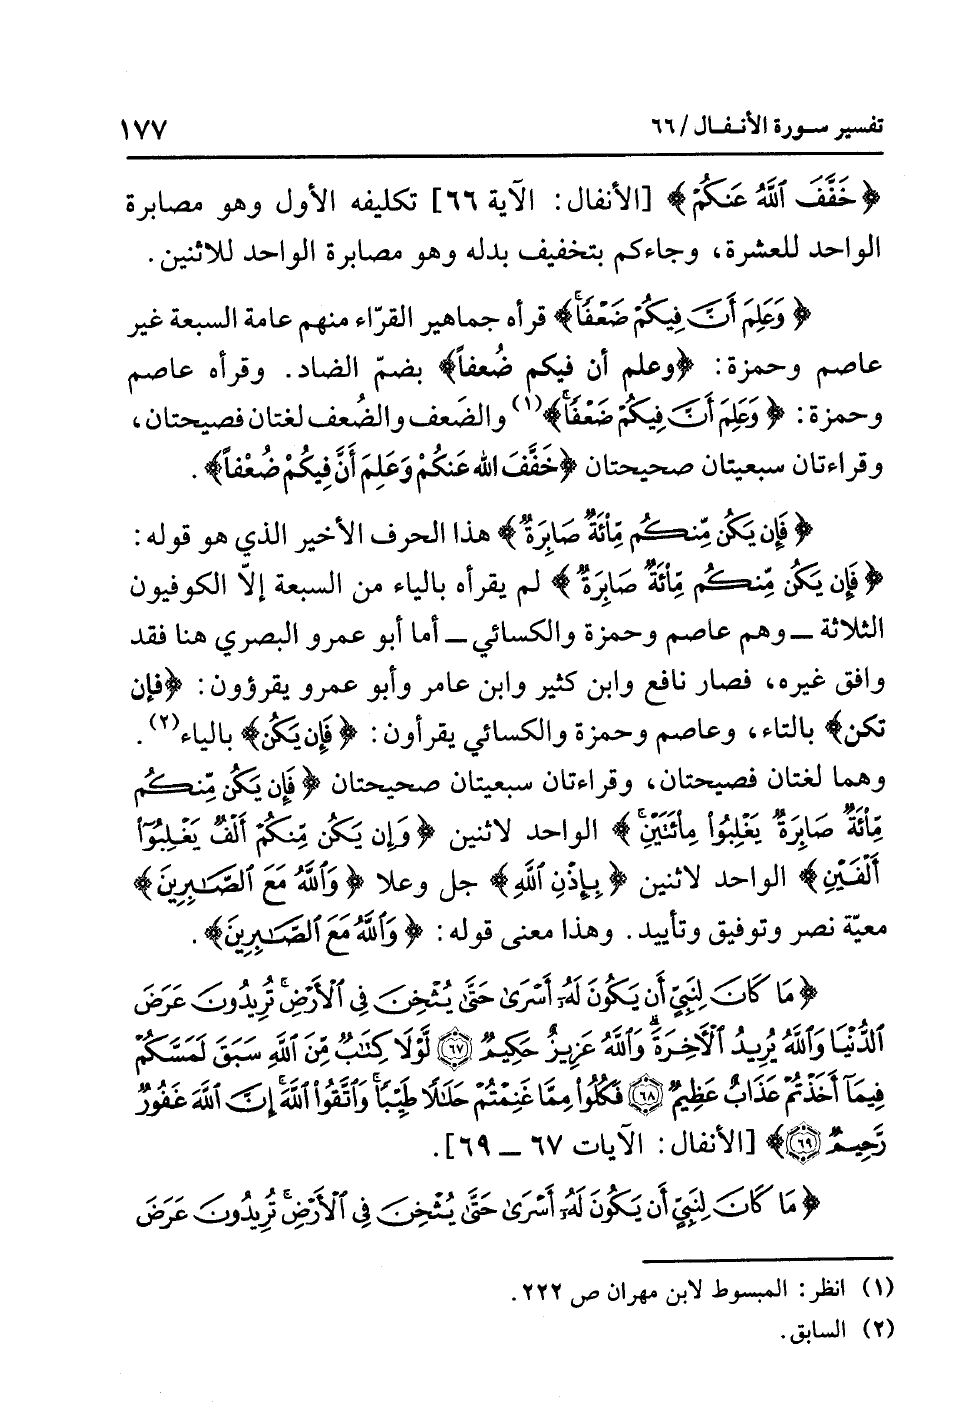 تفسير سـورة الأنـفـال / ٦٦
١٧٧
﴿ خَفَّفَ ٱللَّهُ عَنكُمْ ﴾ [الأنفال: الآية ٦٦] تكليفه الأول وهو مصابرة
الواحد للعشرة، وجاءكم بتخفيف بدله وهو مصابرة الواحد للاثنين.
﴿ وَعَلِمَ أَنَّ فِيكُمْ ضَعْفًاۚ ﴾ قرأه جماهير القرّاء منهم عامة السبعة غير
عاصم وحمزة: ﴿وعلم أن فيكم ضُعفاً﴾ بضمّ الضاد. وقرأه عاصم
وحمزة: ﴿ وَعَلِمَ أَنَّ فِيكُمْ ضَعْفًاۚ ﴾(١) والضَعف والضُعف لغتان فصيحتان،
وقراءتان سبعيتان صحيحتان ﴿خَفَّفَ الله عَنكُمْ وَعَلِمَ أَنَّ فِيكُمْ ضُعْفاً﴾ .
﴿ فَإِن يَكُن مِّنكُم مِّا۟ئَةٌ صَابِرَةٌ ﴾ هذا الحرف الأخير الذي هو قوله:
﴿ فَإِن يَكُن مِّنكُم مِّا۟ئَةٌ صَابِرَةٌ ﴾ لم يقرأه بالياء من السبعة إلاّ الكوفيون
الثلاثة ــ وهم عاصم وحمزة والكسائي ــ أما أبو عمرو البصري هنا فقد
وافق غيره، فصار نافع وابن كثير وابن عامر وأبو عمرو يقرؤون: ﴿فإن
تكن﴾ بالتاء، وعاصم وحمزة والكسائي يقرأون: ﴿ فَإِن يَكُن ﴾ بالياء(٢) .
وهما لغتان فصيحتان، وقراءتان سبعيتان صحيحتان ﴿ فَإِن يَكُن مِّنكُم
مِّا۟ئَةٌ صَابِرَةٌ يَغْلِبُوا۟ مِا۟ئَتَيْنِۚ ﴾ الواحد لاثنين ﴿ وَإِن يَكُن مِّنكُمْ أَلْفٌ يَغْلِبُوٓا۟
أَلْفَيْنِ ﴾ الواحد لاثنين ﴿ بِإِذْنِ ٱللَّهِ ﴾ جل وعلا ﴿ وَٱللَّهُ مَعَ ٱلصَّٰبِرِينَ ﴾
معيّة نصر وتوفيق وتأييد. وهذا معنى قوله: ﴿ وَٱللَّهُ مَعَ ٱلصَّٰبِرِينَ ﴾ .
﴿ مَا كَانَ لِنَبِيٍّ أَن يَكُونَ لَهُۥٓ أَسْرَىٰ حَتَّىٰ يُثْخِنَ فِى ٱلْأَرْضِۚ تُرِيدُونَ عَرَضَ
ٱلدُّنْيَا وَٱللَّهُ يُرِيدُ ٱلْأَخِرَةَۗ وَٱللَّهُ عَزِيزٌ حَكِيمٌ ٦٧ لَّوْلَا كِتَٰبٌ مِّنَ ٱللَّهِ سَبَقَ لَمَسَّكُمْ
فِيمَآ أَخَذْتُمْ عَذَابٌ عَظِيمٌ ٦٨ فَكُلُوا۟ مِمَّا غَنِمْتُمْ حَلَٰلًا طَيِّبًاۚ وَٱتَّقُوا۟ ٱللَّهَۚ إِنَّ ٱللَّهَ غَفُورٌ
رَّحِيمٌ ٦٩ ﴾ [الأنفال: الآيات ٦٧ ــ ٦٩].
﴿ مَا كَانَ لِنَبِيٍّ أَن يَكُونَ لَهُۥٓ أَسْرَىٰ حَتَّىٰ يُثْخِنَ فِى ٱلْأَرْضِۚ تُرِيدُونَ عَرَضَ
(١) انظر: المبسوط لابن مهران ص ٢٢٢.
(٢) السابق.